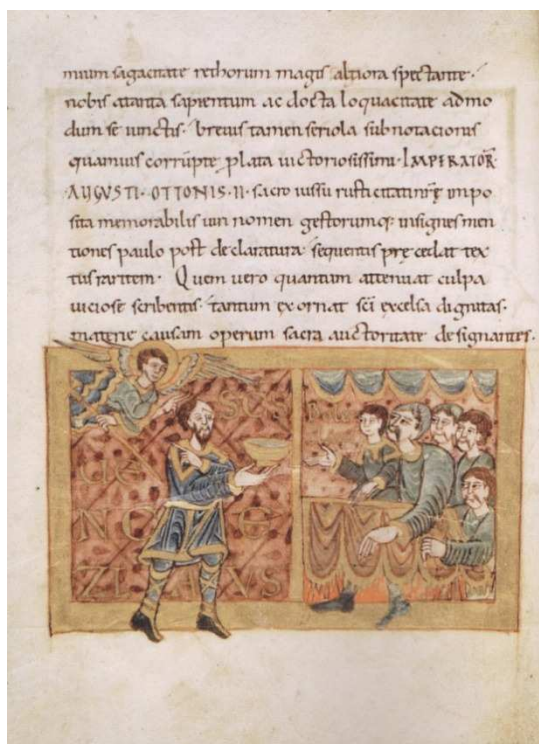 mium sagacitate rethorum magis altiora spectante.
nobis atanta sapientum ac docta loquacitate admo
dum se iunctis. brevis tamen seriola subnotacionis
quamvis corrupte plata victoriosissimi. IMPERATOR
AUGUSTI. OTTONIS. II. sacro iussu rusticitati nrȩ impo
sita memorabilis viri nomen gestorumq; insignes men
tiones paulo post declaratura. sequentis prȩcedat tex
tus raritem. Quem vero quantum attenuat culpa
viciose scribentis. tantum exornat sci excelsa dignitas.
materie causam operum sacra auctoritate designantes.
SCS
UE
NC E
ZLAVS